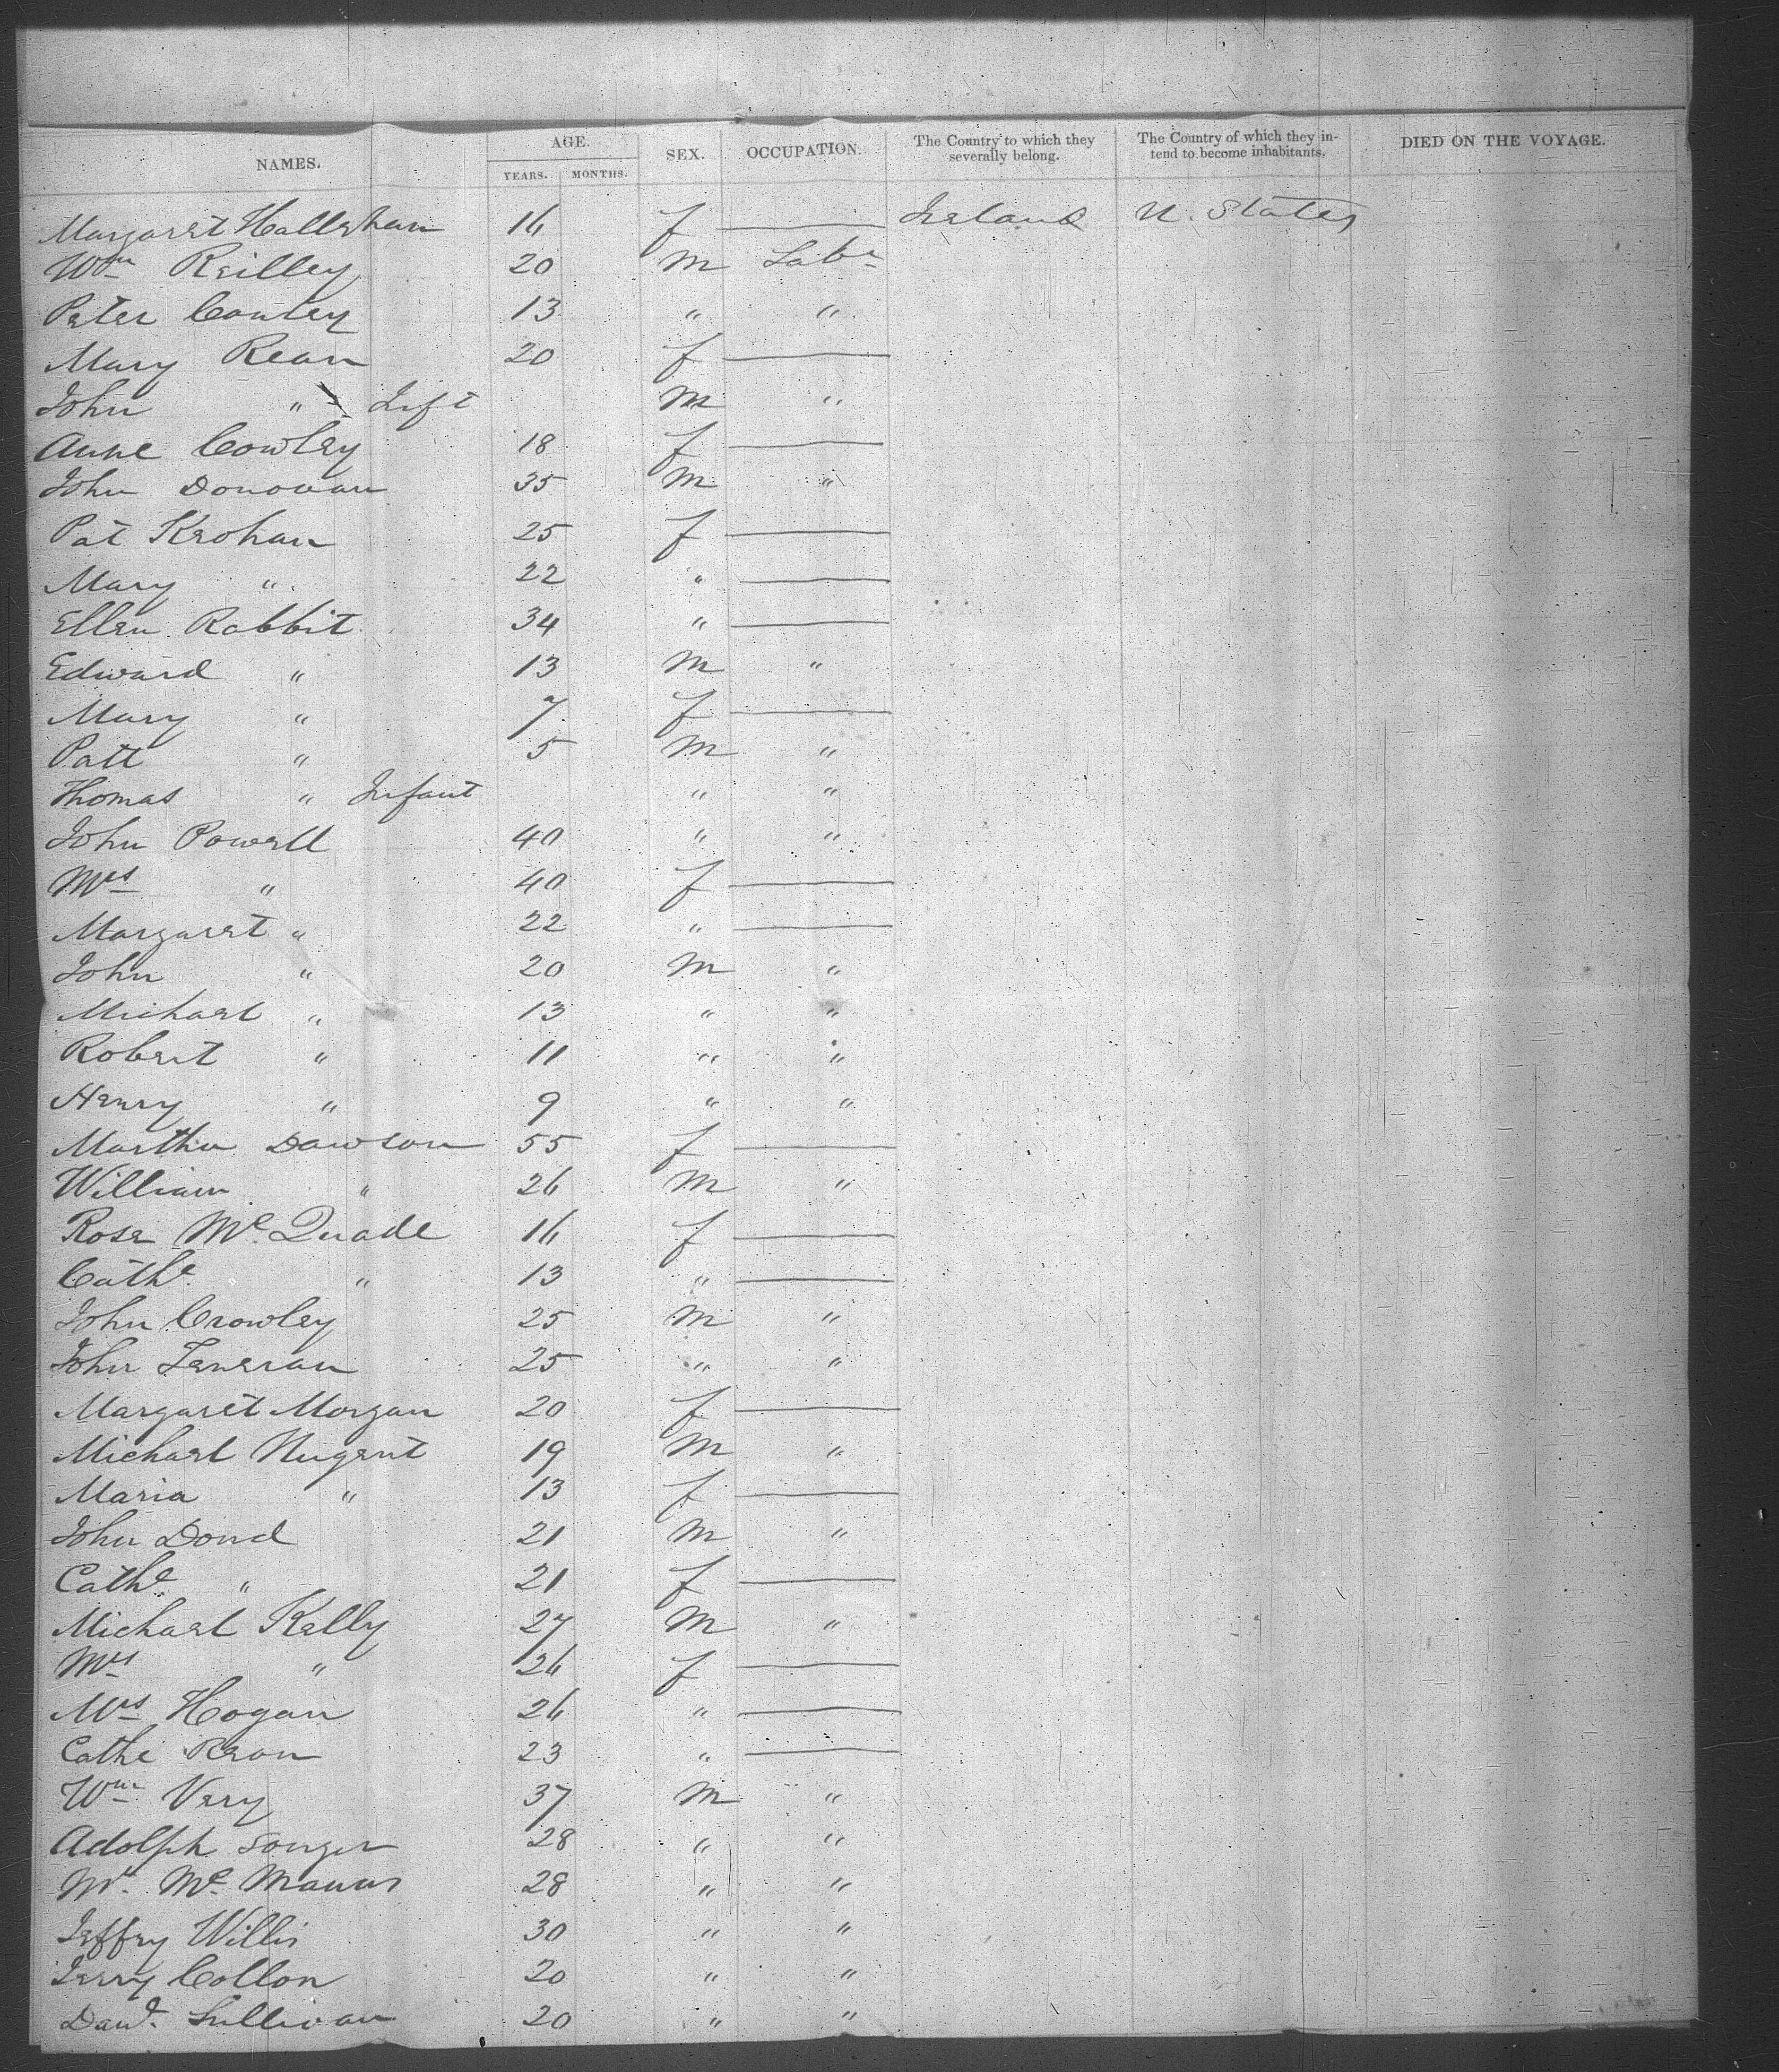 NAMES. AGE. YEARS. MONTHS. SEX. OCCUPATION. The Country to which they severally belong. The Country of which they intend to become inhabitants. DIED ON THE VOYAGE.
Margaret Hallahan 16 f — Ireland U. States
Wm Reilley 20 m Labr
Peter Conley 13 " "
Mary Rean 20 f —
John " Inft m "
Anne Cowley 18 f —
John Donovan 35 m "
Pat Keohan 25 f —
Mary " 22 " —
Ellen Rabbit 34 " —
Edward " 13 m "
Mary " 7 f —
Patt " 5 m "
Thomas " Infant " "
John Powell 40 " "
Mrs " 40 f —
Margaret " 22 " —
John " 20 m "
Michael " 13 " "
Robert " 11 " "
Henry " 9 " "
Martha Dawson 55 f —
William " 26 m "
Rose Mc Quade 16 f —
Cathe " 13 " —
John Crowley 25 m "
John 25 " "
Margaret Morgan 20 f —
Michael Nugent 19 m "
Maria " 13 f —
John Doud 21 m "
Cathe " 21 f —
Michael Kelly 27 m "
Mrs " 26 f —
Mrs Hogan 26 " —
Cathe Rean 23 " —
Wm Very 37 m "
Adolph 28 " "
Mr Mc Manus 28 " "
Jeffry Willis 30 " "
Jerry Collon 20 " "
Danl Sullivan 20 " "